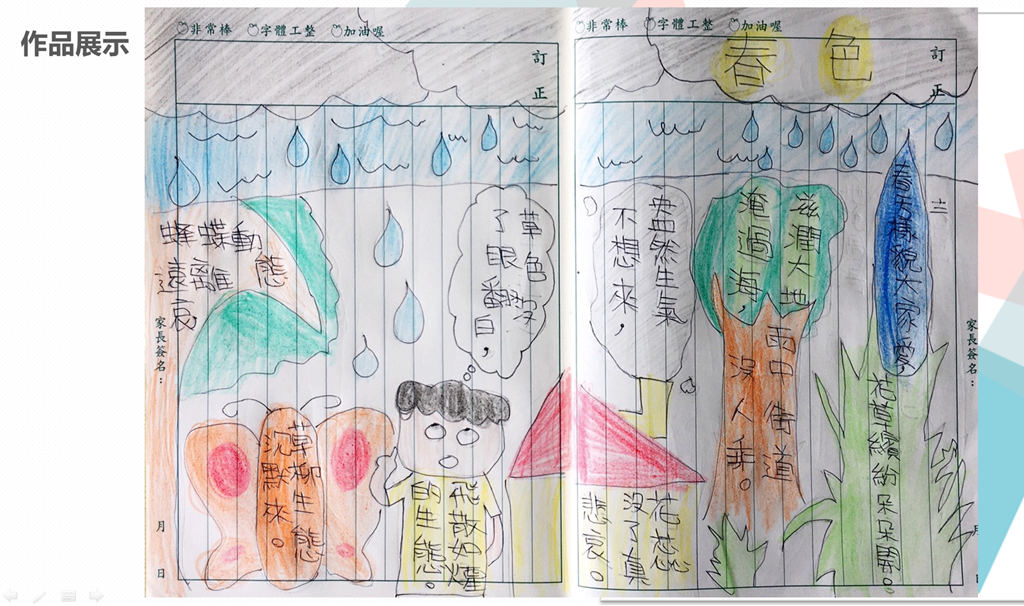 作品展示
非常棒 字體工整 加油喔
訂正
春色
春天樣貌大家愛,
花草繽紛朵朵開。
滋潤大地
淹過海,
雨中街道
沒人乖。
盎然生氣
不想來,
花蕊
沒了真
悲哀。
家長簽名:
月
日
非常棒 字體工整 加油喔
訂正
草色沒
了眼翻白,
飛散如燿
的生態。
蜂蝶動態
遠離哀
草柳生態
沉默來。
家長簽名:
月 日